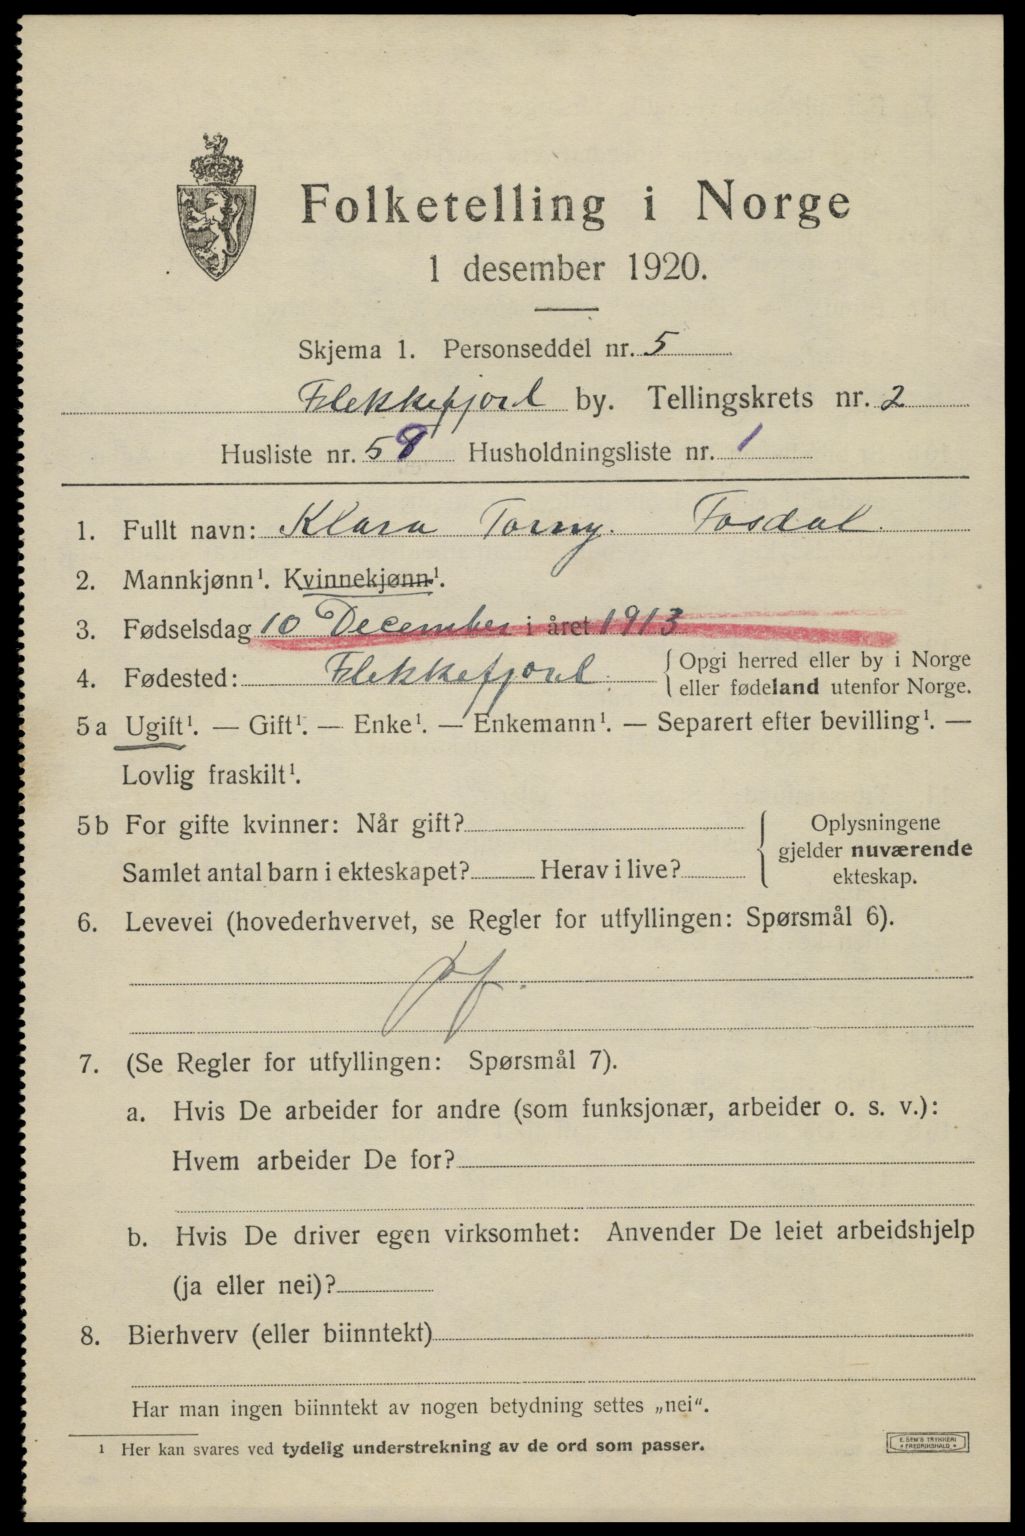 Folketelling i Norge
1 desember 1920.
Skjema 1. Personseddel nr. 5
Flekkefjord by. Tellingskrets nr. 2
Husliste nr. 58 Husholdningsliste nr. 1
1. Fullt navn: Klara Torny. Fosdal.
2. Mannkjønn¹. Kvinnekjønn¹.
3. Fødselsdag 10 December i året 1913
4. Fødested: Flekkefjord. { Opgi herred eller by i Norge
eller fødeland utenfor Norge.
5 a Ugift¹. — Gift¹. — Enke¹. — Enkemann¹. — Separert efter bevilling¹. —
Lovlig fraskilt¹.
5 b For gifte kvinner: Når gift? { Oplysningene
gjelder nuværende
Samlet antal barn i ekteskapet? Herav i live? ekteskap.
6. Levevei (hovederhvervet, se Regler for utfyllingen: Spørsmål 6).
7. (Se Regler for utfyllingen: Spørsmål 7).
a. Hvis De arbeider for andre (som funksjonær, arbeider o. s. v.):
Hvem arbeider De for?
b. Hvis De driver egen virksomhet: Anvender De leiet arbeidshjelp
(ja eller nei)?
8. Bierhverv (eller biinntekt)
Har man ingen biinntekt av nogen betydning settes „nei“.
¹ Her kan svares ved tydelig understrekning av de ord som passer.
E. SEM'S TRYKKERI
• FREDRIKSHALD •